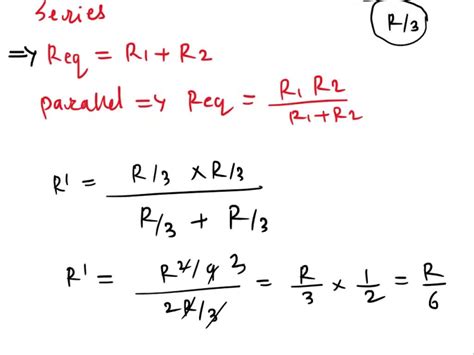 Series
R/3
=> Req = R1 + R2
parallel => Req = R1 R2 / R1 + R2
R' = R/3 × R/3 / R/3 + R/3
R' = R²/9 3 / 2R/3 = R/3 × 1/2 = R/6